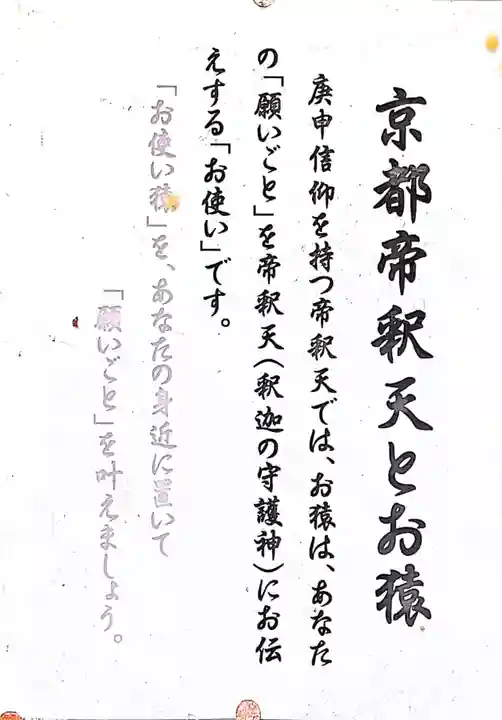 京都帝釈天とお猿
庚申信仰を持つ帝釈天では、お猿は、あなた
の「願いごと」を帝釈天(釈迦の守護神)にお伝
えする「お使い」です。
「お使い猿」を、あなたの身近に置いて
「願いごと」を叶えましょう。